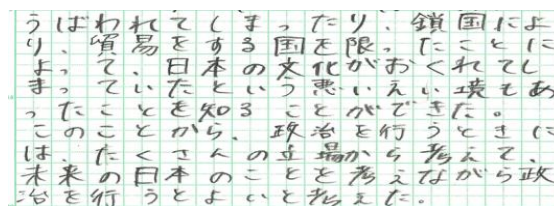 うばわれてしまったり、鎖国によ
り、貿易をする国を限ったことに
よって、日本の文化がおくれてし
まっていたという悪いえい境もあ
ったことを知ることができた。
このことから、政治を行うときに
は、たくさんの立場から考えて、
未来の日本のことを考えながら政
治を行うとよいと考えた。